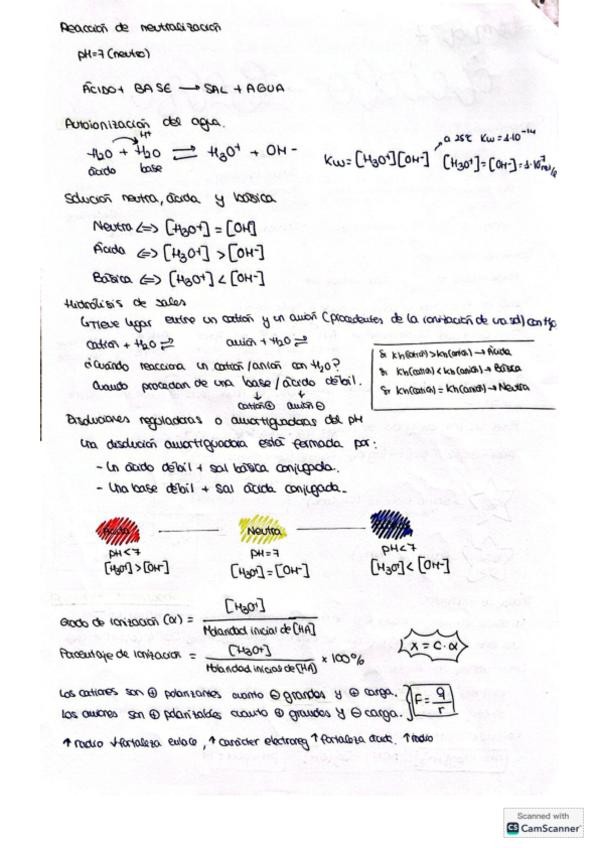 Reacción de neutralización
pH=7 (neutro)
ÁCIDO + BASE → SAL + AGUA
Autoionización del agua.
H+
H2O + H2O ⇌ H3O+ + OH-
ácido base
Kw = [H3O+][OH-]
a 25ºC Kw = 1·10^-14
[H3O+] = [OH-] = 1·10^-7
Solución neutra, ácida y básica
Neutra <=> [H3O+] = [OH]
Ácida <=> [H3O+] > [OH-]
Básica <=> [H3O+] < [OH-]
Hidrólisis de sales
Tiene lugar entre un catión y un anión (procedentes de la ionización de una sal) con H2O
catión + H2O ⇌ anión + H2O ⇌
¿Cuándo reacciona un catión/anión con H2O?
Cuando procedan de una base / ácido débil.
↓ ↓
catión ⊕ anión ⊖
Si Kh(catión) > Kh(anión) → Ácida
Si Kh(catión) < Kh(anión) → Básica
Si Kh(catión) = Kh(anión) → Neutra
Disoluciones reguladoras o amortiguadoras del pH
Una disolución amortiguadora está formada por:
- Un ácido débil + sal básica conjugada.
- Una base débil + sal ácida conjugada.
Ácida Neutra
pH<7 pH=7 pH<7
[H3O+] > [OH-] [H3O+] = [OH-] [H3O+] < [OH-]
Grado de ionización (α) = [H3O+] / Molaridad inicial de [HA]
Porcentaje de ionización = [H3O+] / Molaridad inicial de [HA] × 100%
x = C·α
Los cationes son ⊕ polarizantes cuanto ⊖ grandes y ⊕ carga.
Los aniones son ⊕ polarizables cuanto ⊕ grandes y ⊖ carga.
F = q / r
↑ radio ↓ fortaleza enlace, ↑ carácter electroneg ↑ fortaleza ácido. ↑ radio
Scanned with
CS CamScanner